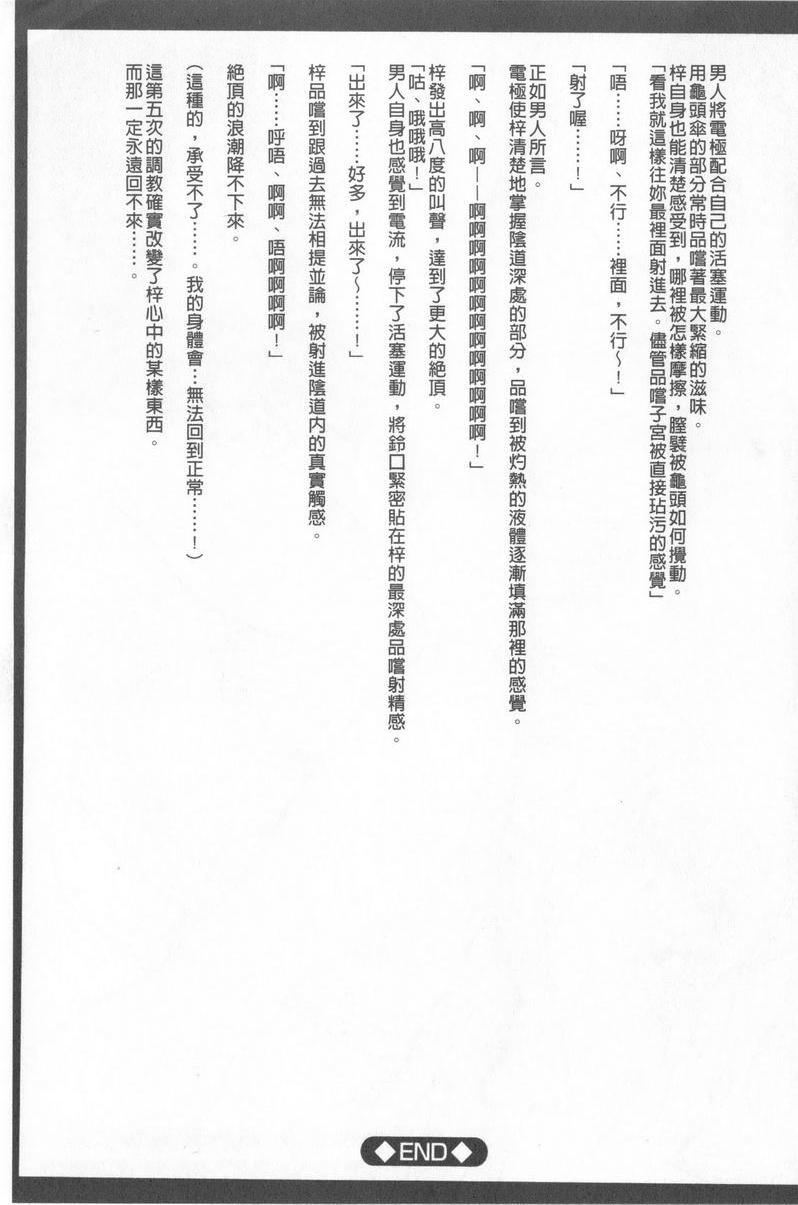 男人將電極配合自己的活塞運動。
用龜頭傘的部分常時品嚐著最大緊縮的滋味。
梓自身也能清楚感受到，哪裡被怎樣摩擦，膣襞被龜頭如何攪動。
「看我就這樣往妳最裡面射進去。儘管品嚐子宮被直接玷污的感覺」
「唔……呀啊、不行……裡面，不行～！」
「射了喔……！」
正如男人所言。
電極使梓清楚地掌握陰道深處的部分，品嚐到被灼熱的液體逐漸填滿那裡的感覺。
「啊、啊、啊——啊啊啊啊啊啊啊啊啊啊啊啊！」
梓發出高八度的叫聲，達到了更大的絕頂。
「咕、哦哦哦！」
男人自身也感覺到電流，停下了活塞運動，將鈴口緊密貼在梓的最深處品嚐射精感。
「出來了……好多，出來了～……！」
梓品嚐到跟過去無法相提並論，被射進陰道內的真實觸感。
「啊……呼唔、啊啊、唔啊啊啊啊！」
絕頂的浪潮降不下來。
（這種的，承受不了……。我的身體會…無法回到正常……！）
這第五次的調教確實改變了梓心中的某樣東西。
而那一定永遠回不來……。
◆END◆